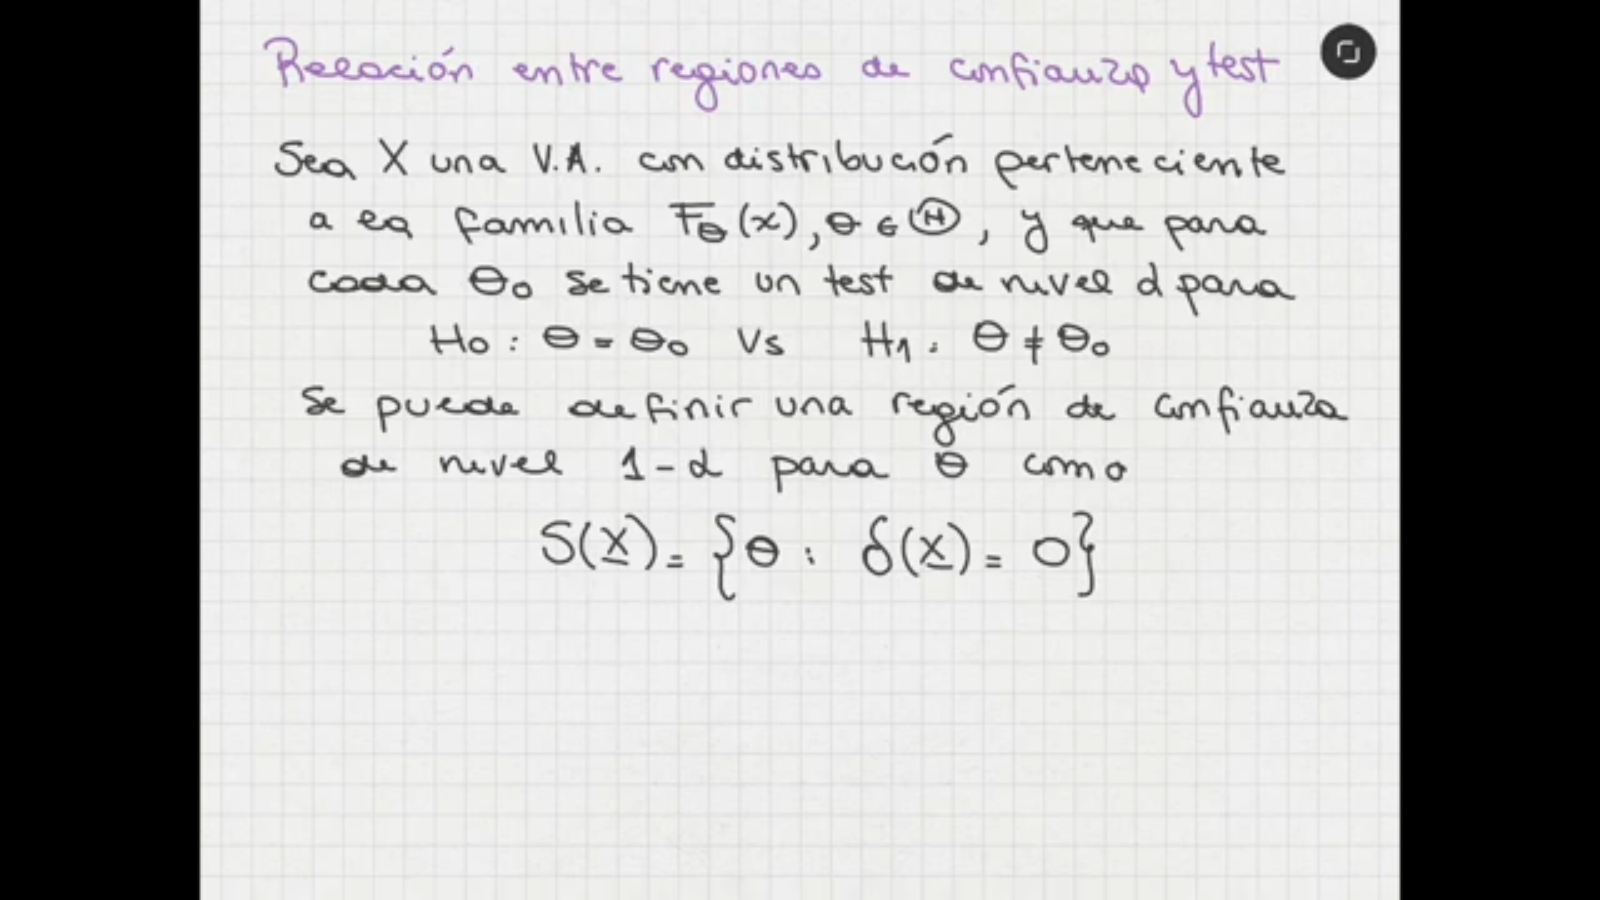 Relación entre regiones de confianza y test
Sea X una V.A. con distribución perteneciente
a la familia F_θ(x), θ ∈ Θ, y que para
cada θ₀ se tiene un test de nivel α para
H₀ : θ = θ₀ Vs H₁ : θ ≠ θ₀
Se puede definir una región de confianza
de nivel 1-α para θ como
S(X̲) = {θ : δ(X̲) = 0}